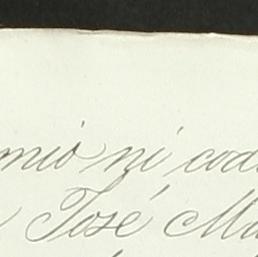 mio ni cod
José Ma